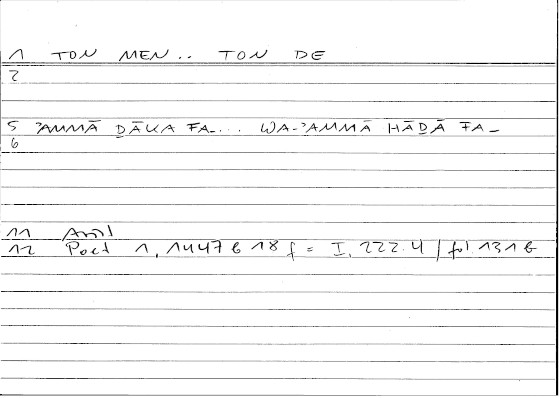 1 TON MEN.. TON DE
2
5 ʾAMMĀ ḎĀKA FA-... WA-ʾAMMĀ HĀḎĀ FA-
6
11 Arist
12 Poet 1, 1447 b 18 f = I, 222.4 / fol 131 b